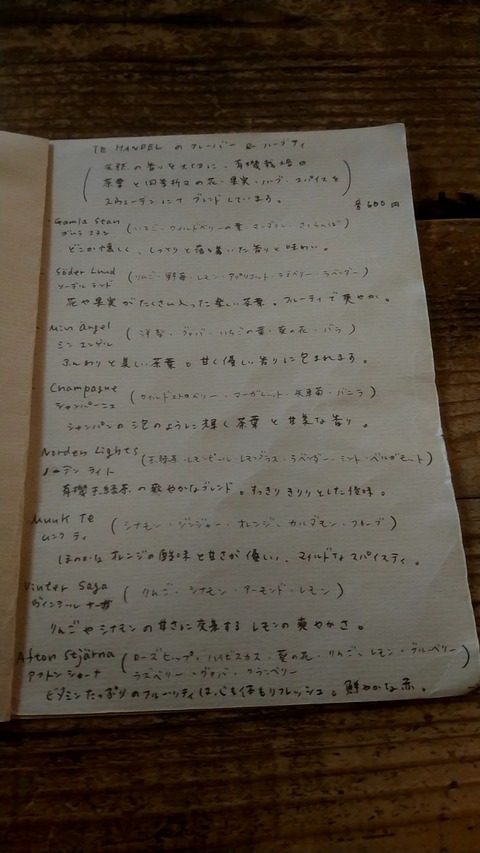 TE HANDEL の フレーバー & ハーブティ
天然の香りを大切に、有機栽培の
茶葉と四季折々の花・果実・ハーブ・スパイスを
スウェーデンにて ブレンドしています。
各600円
・Gamla Stan (いちご・ワイルドベリーの葉・マンゴスチン・さくらんぼ)
ガムラ スタン
どこか懐しく、しっとりと落ち着いた香りと味わい。
・Söder Lund (りんご・野苺・レモン・アプリコット・ラズベリー・ラベンダー)
ソーデル ランド
花や果実がたくさん入った楽しい茶葉。フルーティで爽やか。
・Min Angel (洋梨・グァバ・いちごの葉・葵の花・バラ)
ミン エンゲル
ふんわりと美しい茶葉。甘く優しい香りに包まれます。
・Champagne (ワイルドストロベリー・マーガレット・矢車菊・バニラ)
シャンパーニュ
シャンパンの泡のように輝く茶葉と甘美な香り。
Norden Lights (玉緑茶・レモンピール・レモングラス・ラベンダー・ミント・ベルガモット)
ノーデン ライト
有機玉緑茶の爽やかなブレンド。すっきりきりりとした後味。
Munk Te (シナモン・ジンジャー・オレンジ・カルダモン・クローブ)
ムンク ティ
ほのかなオレンジの酸味と甘さが優しい、マイルドなスパイスティ。
Vinter Saga (りんご・シナモン・アーモンド・レモン)
ヴィンテール サーガ
りんごやシナモンの甘さに交差するレモンの爽やかさ。
Afton Stjärna (ローズヒップ・ハイビスカス・葵の花・りんご・レモン・ブルーベリー
アフトン ショーナ ラズベリー・グァバ・クランベリー)
ビタミンたっぷりのフルーツティは心も体もリフレッシュ。鮮やかな赤。